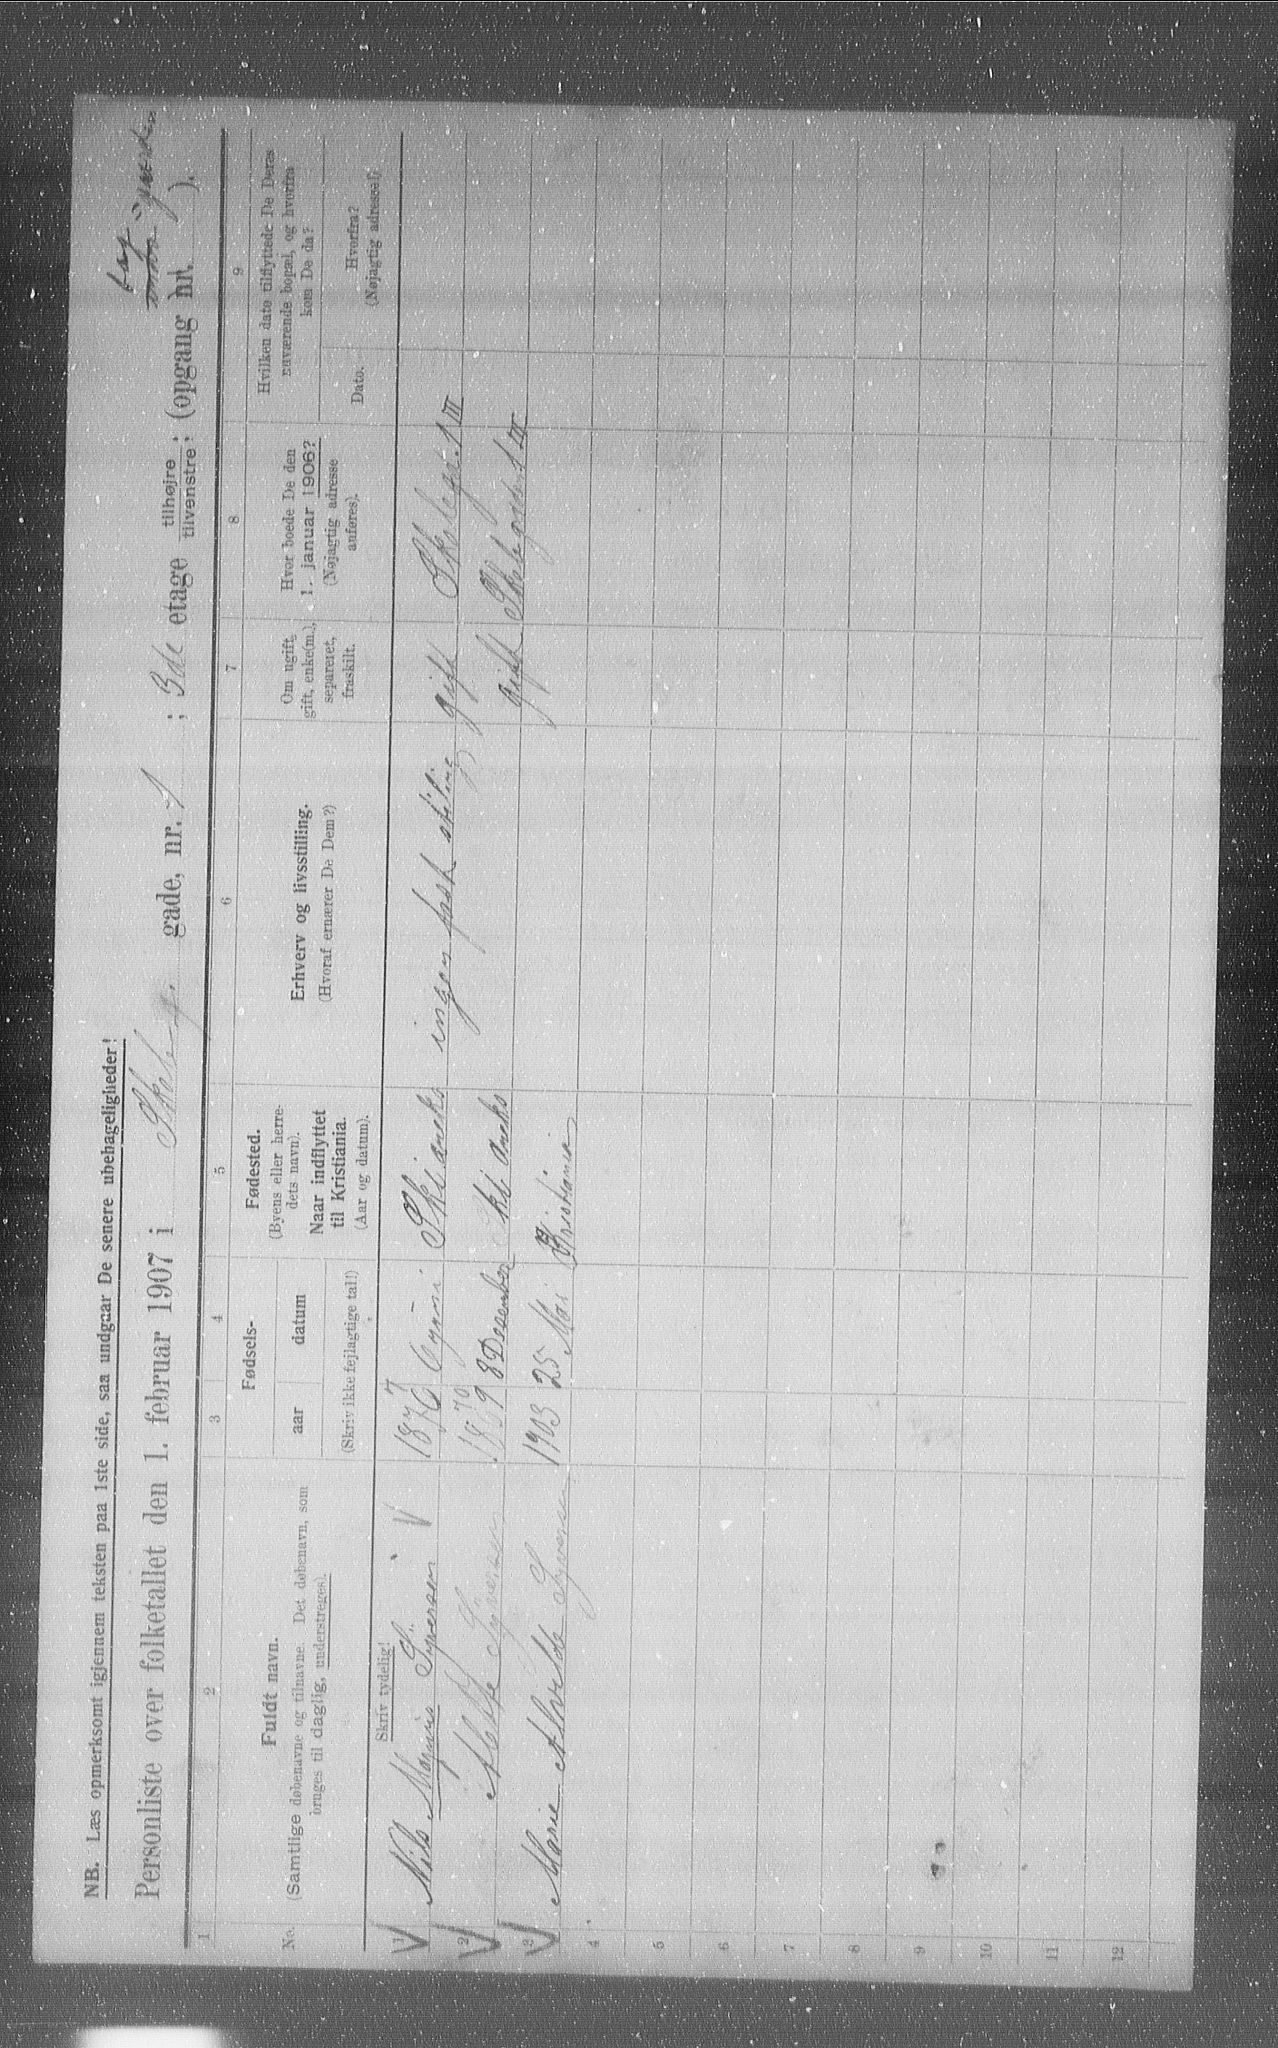 NB. Læs opmerksomt igjennem teksten paa 1ste side, saa undgaar De senere ubehageligheder!
Personliste over folketallet den 1. februar 1907 i Skole g. gade, nr. 1 ; 3de etage tilhøjre tilvenstre ; (opgang nr. ).
1 2 3 4 5 6 7 8 9
No.
Fuldt navn.
(Samtlige døbenavne og tilnavne. Det døbenavn, som
bruges til daglig, understreges).
Fødsels-
aar
datum
(Skriv ikke fejlagtige tal!)
Fødested.
(Byens eller herre-
dets navn).
Naar indflyttet
til Kristiania.
(Aar og datum).
Erhverv og livsstilling.
(Hvoraf ernærer De Dem?)
Om ugift,
gift, enke(m.),
separeret,
fraskilt.
Hvor boede De den
1. januar 1906?
(Nøjagtig adresse
anføres).
Hvilken dato tilflyttede De Deres
nuværende bopæl, og hvorfra
kom De da?
Dato.
Hvorfra?
(Nøjagtig adresse!)
Skriv tydelig!
1 Nils Magnus Syversen 1876 6 juni Ski aneks ingen fask stiling gift Skolegt. 1 III
2 Syversen 8 Desember Ski aneks gift Skolegaden 1 III
3 Marie Alvilde Syversen 1903 25 Mai Kristiania
4
5
6
7
8
9
10
11
12